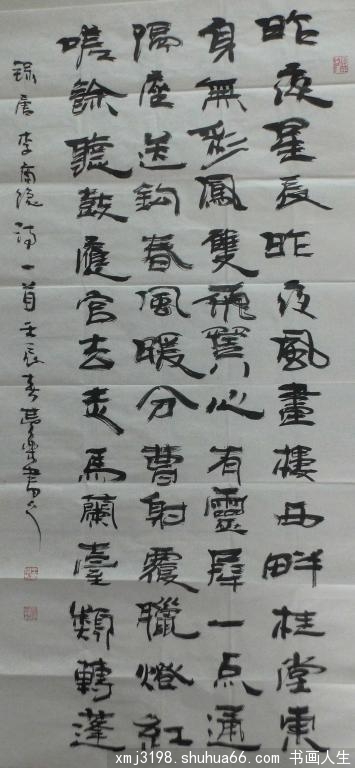 昨夜星辰昨夜風畫樓西畔桂堂東
身無彩鳳雙飛翼心有靈犀一点通
隔座送鈎春風暖分曹射覆臘燈紅
嗟餘聽鼓應官去走馬蘭臺類轉蓬
錄唐李商隱詩一首壬辰春
xmj3198.shuhua66.com 书画人生